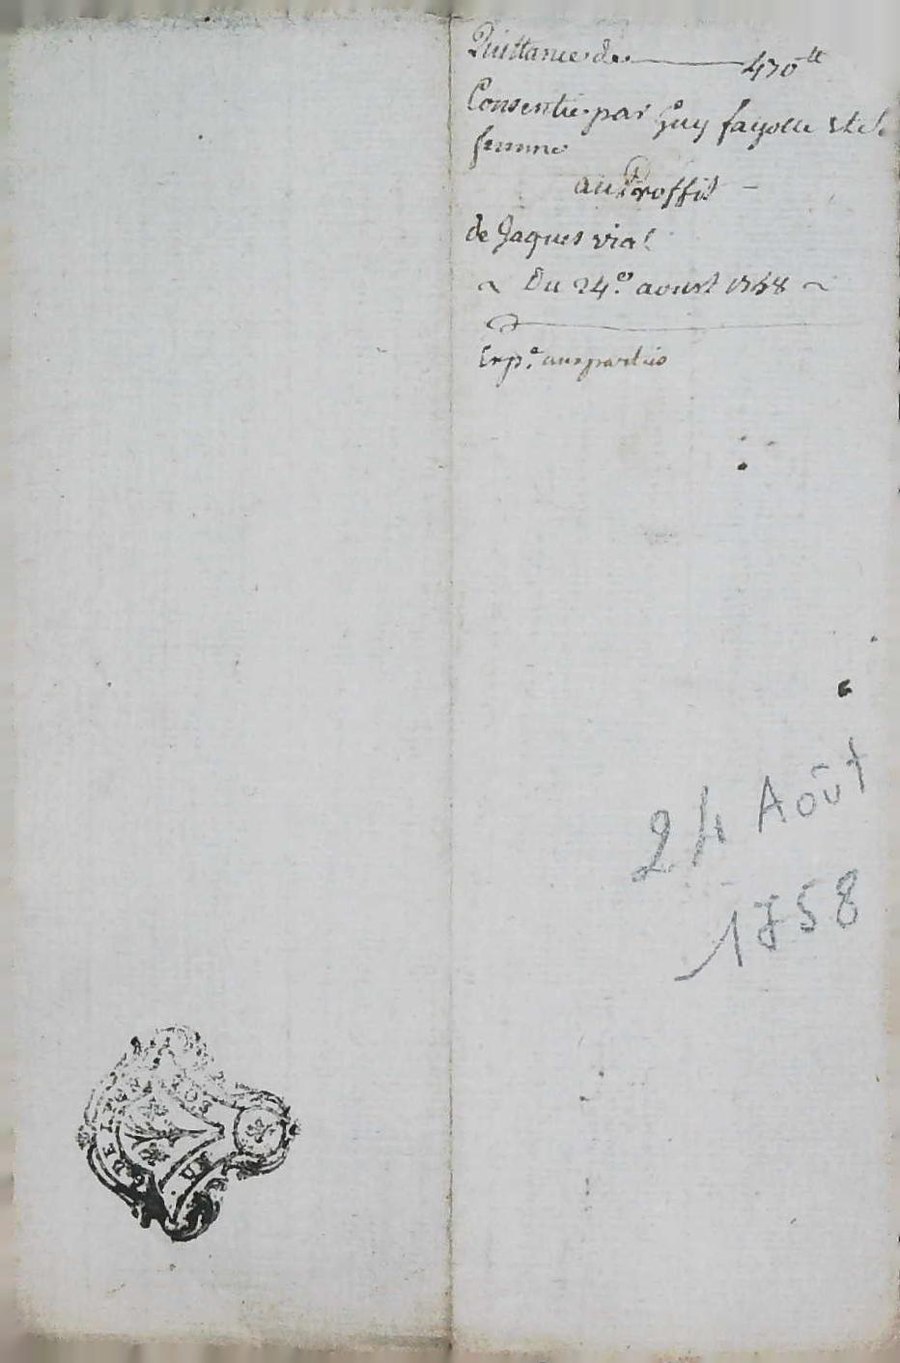 Quittance de 470tt
Consentie par Guy fayolle et Sa
femme
au Proffit
de Jaques vial
Du 24.e aoust 1758
Exp.e aux parties
24 Août
1758